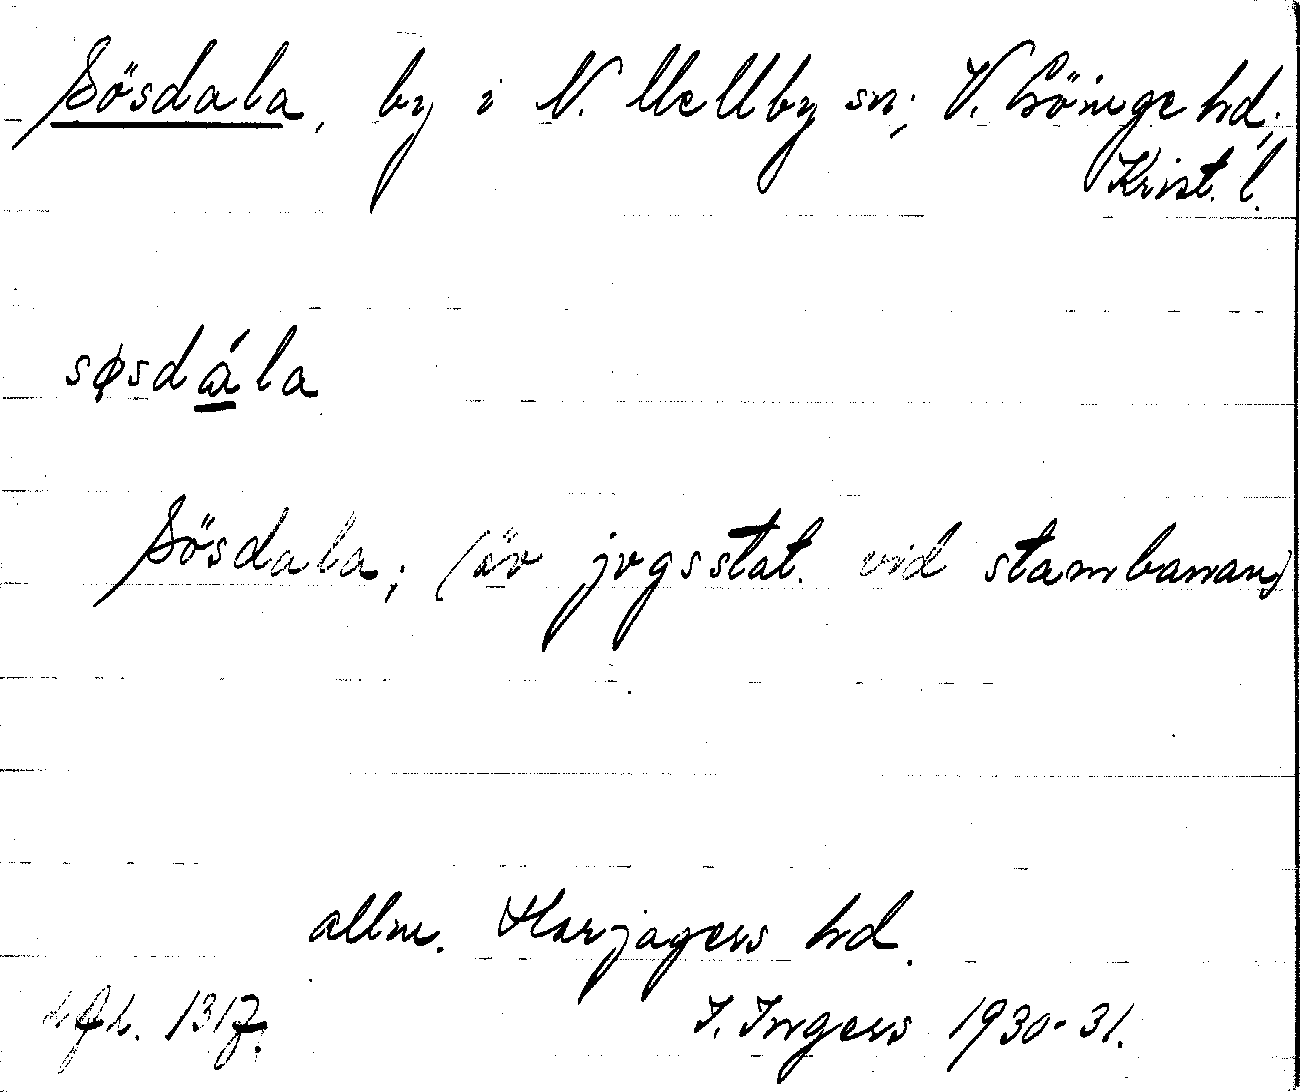 Sösdala, by i N. Mellby sn; V. Göinge hd;
Krist. l.
søsdála
Sösdala; (äv jvgsstat. vid stambanan)
allm. Harjagers hd.
1317. I. Ingers 1930-31.